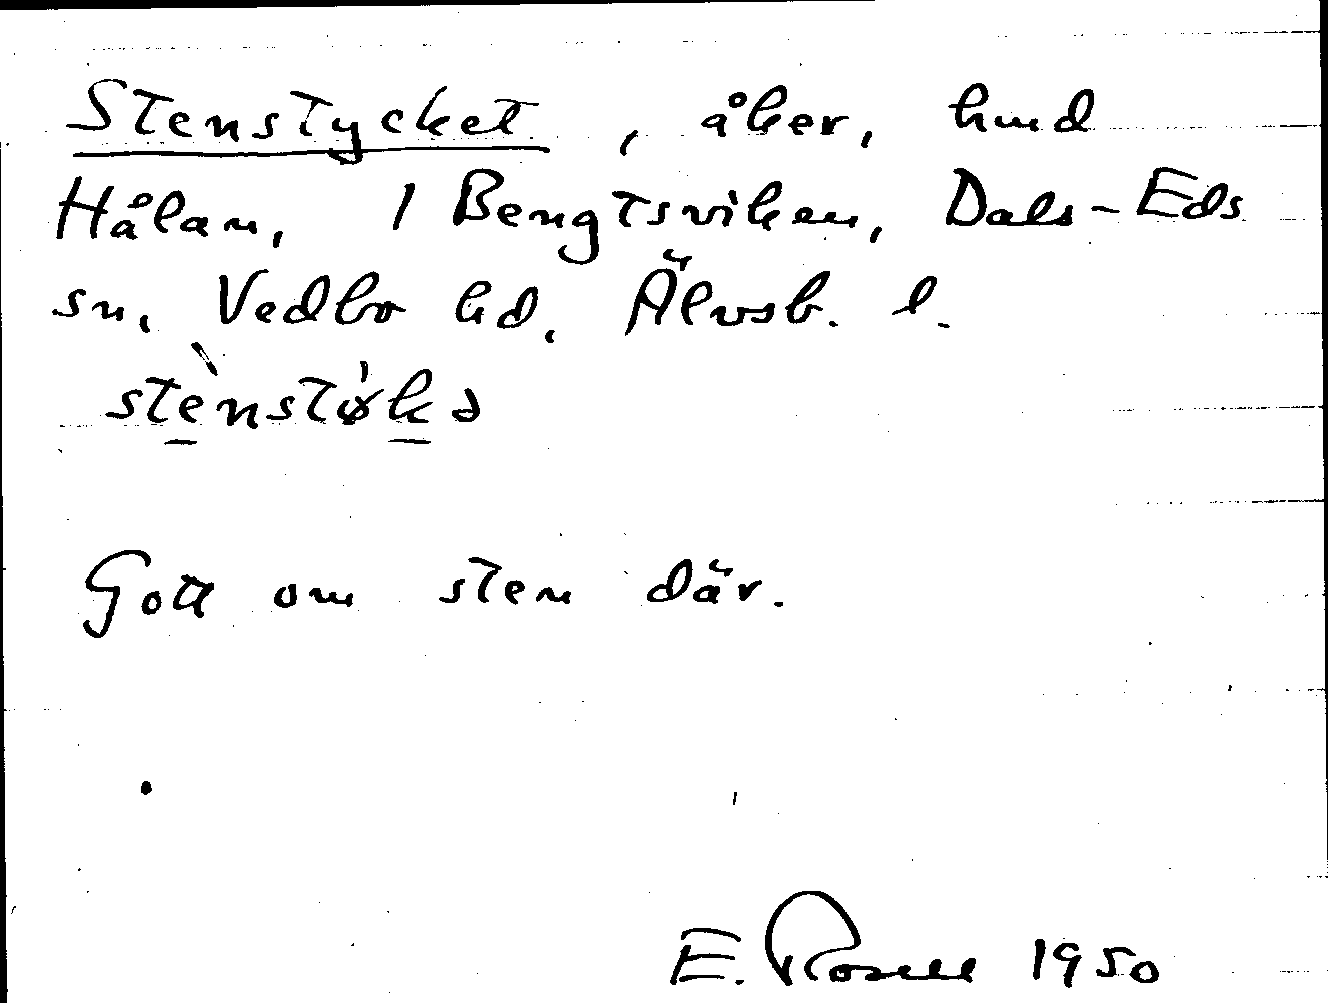 Stenstycket, åker, hmd
Hålan, 1 Bengtsviken, Dals-Eds
sn, Vedbo hd, Älvsb. l.
stènstø̀kə
Gott om sten där.
E. Rosell 1950